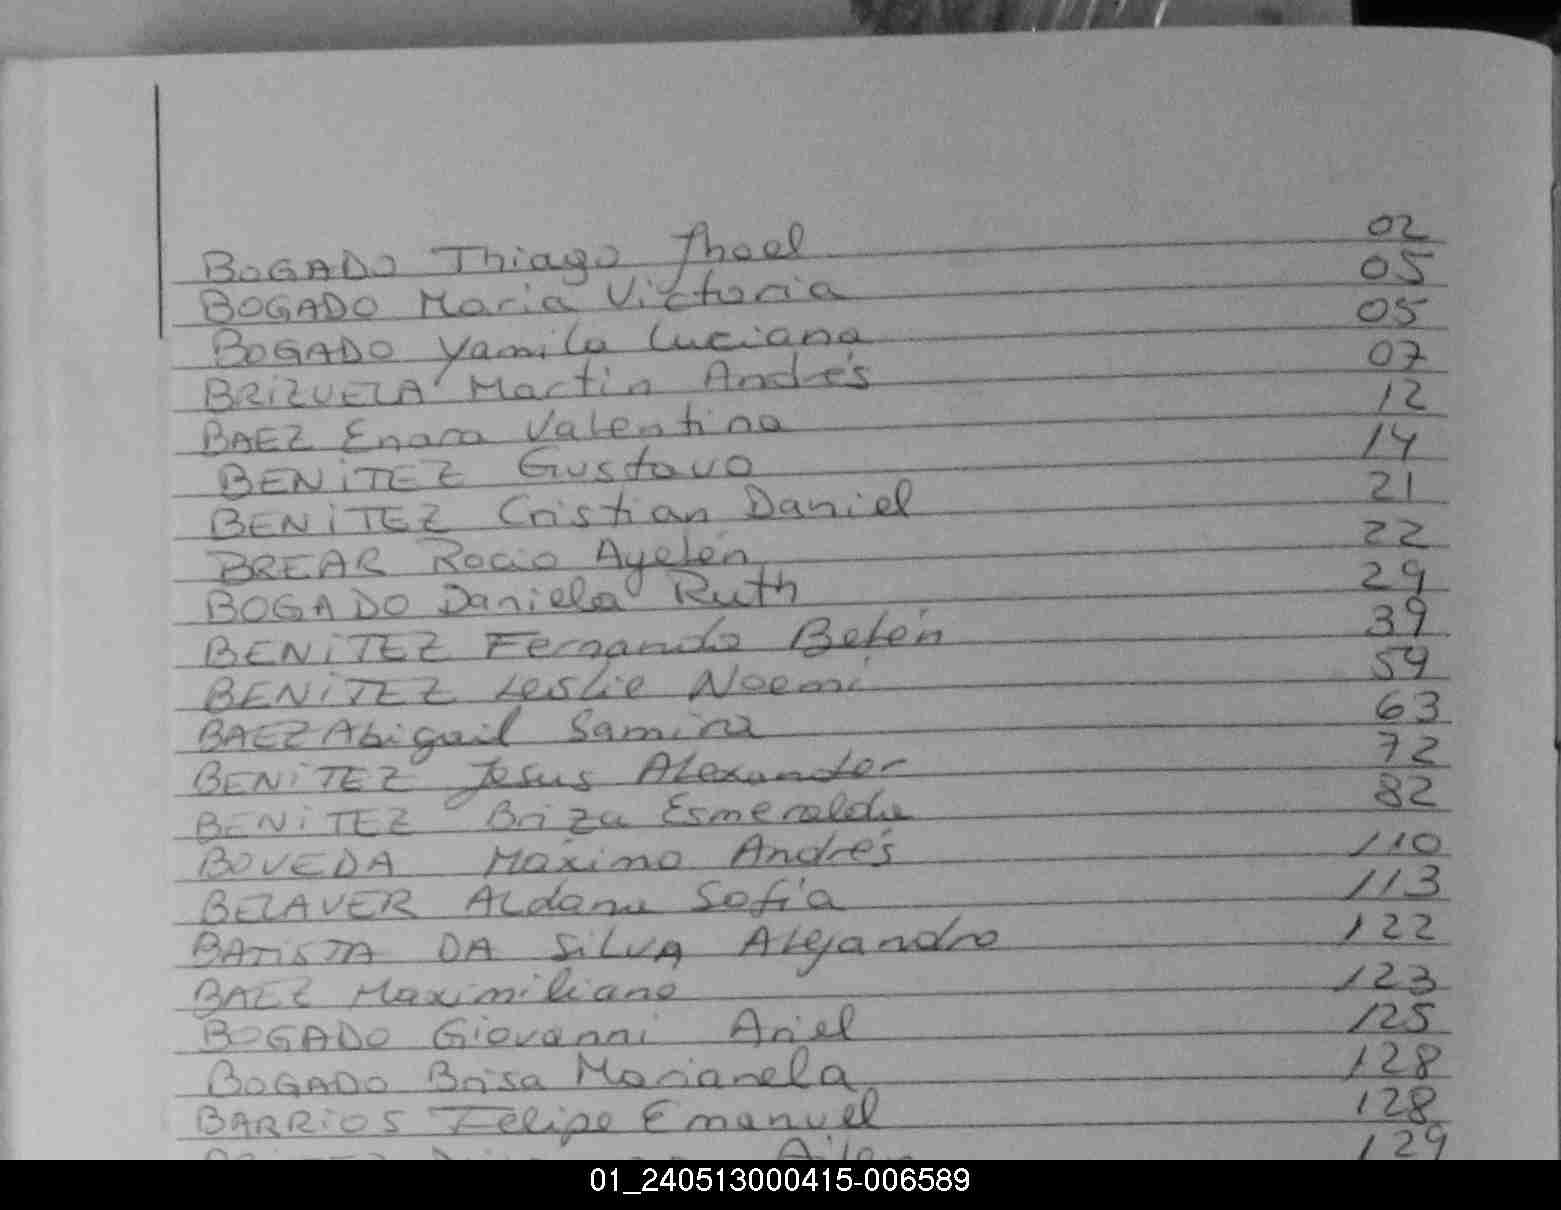 BOGADO Thiago Jhoel 02
BOGADO Maria Victoria 05
BOGADO Yamila Luciana 05
BRIZUELA Martin Andrés 07
BAEZ Enara Valentina 12
BENITEZ Gustavo 14
BENITEZ Cristian Daniel 21
BREAR Rocio Ayelén 22
BOGADO Daniela Ruth 29
BENITEZ Fernando Belén 39
BENITEZ Leslie Noemi 59
BAEZ Abigail Samira 63
BENITEZ Jesus Alexander 72
BENITEZ Briza Esmeralda 82
BOVEDA Maximo Andrés 110
BELAVER Aldana Sofía 113
BATISTA DA SILVA Alejandro 122
BAEZ Maximiliano 123
BOGADO Giovanni Ariel 125
BOGADO Brisa Marianela 128
BARRIOS Felipe Emanuel 128
129
01_240513000415-006589